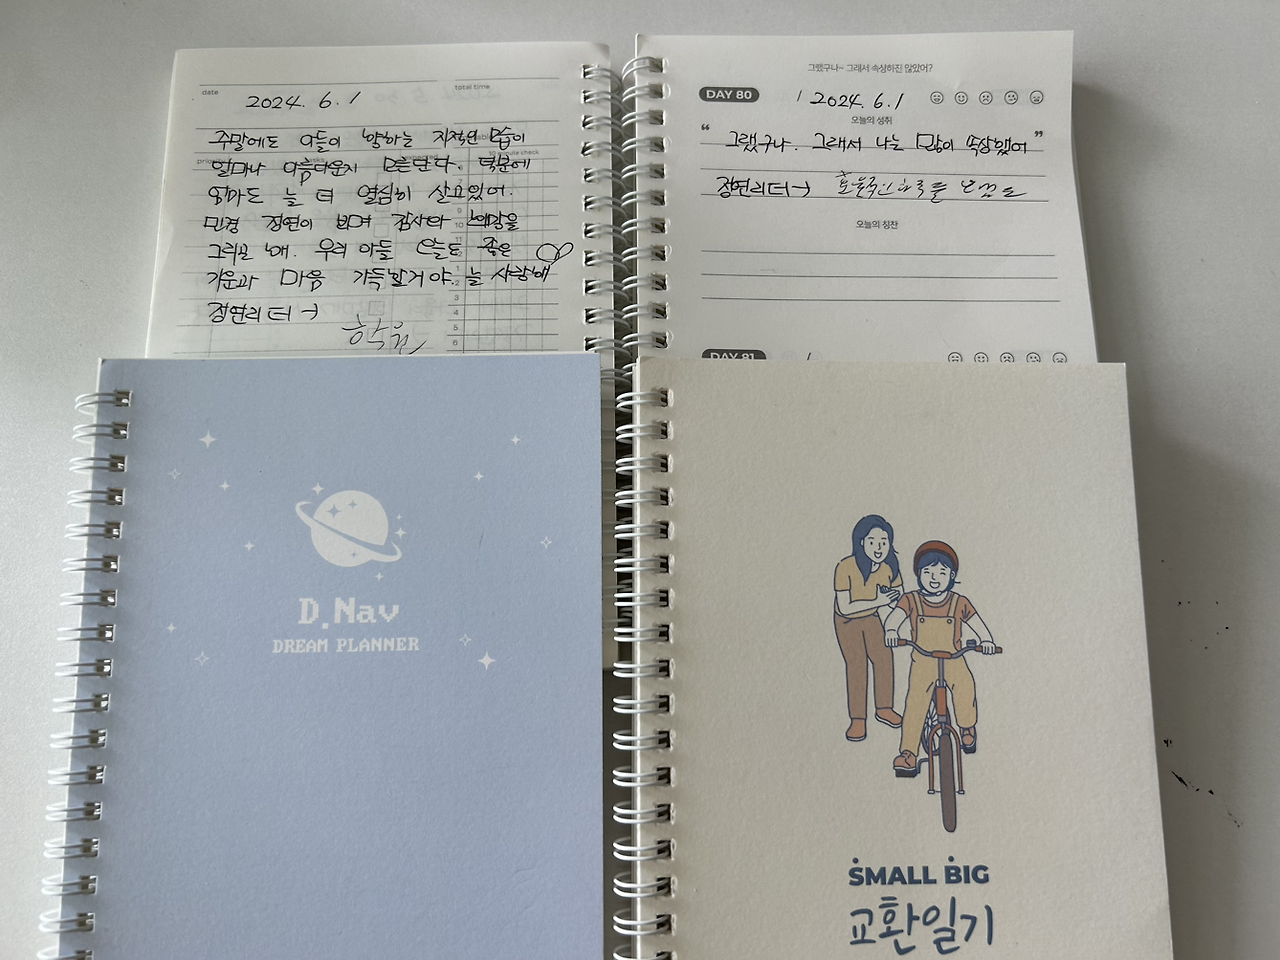 date
total time
2024. 6. 1
주말에도 아들이 향하는 지적인 모습이
얼마나 아름다운지 모른단다. 덕분에
엄마도 늘 더 열심히 살고있어.
민경 정연이 보며 감사와 희망을
그리곤 해. 우리 아들 오늘도 좋은
기운과 마음 가득할거야. 늘 사랑해
정연리더→
그랬구나~ 그래서 속상하진 않았어?
DAY 80
/ 2024. 6. 1
오늘의 성취
“그랬구나. 그래서 나는 많이 속상했어”
정연리더→
오늘의 칭찬
DAY 81
D.Nav
DREAM PLANNER
SMALL BIG
교환일기